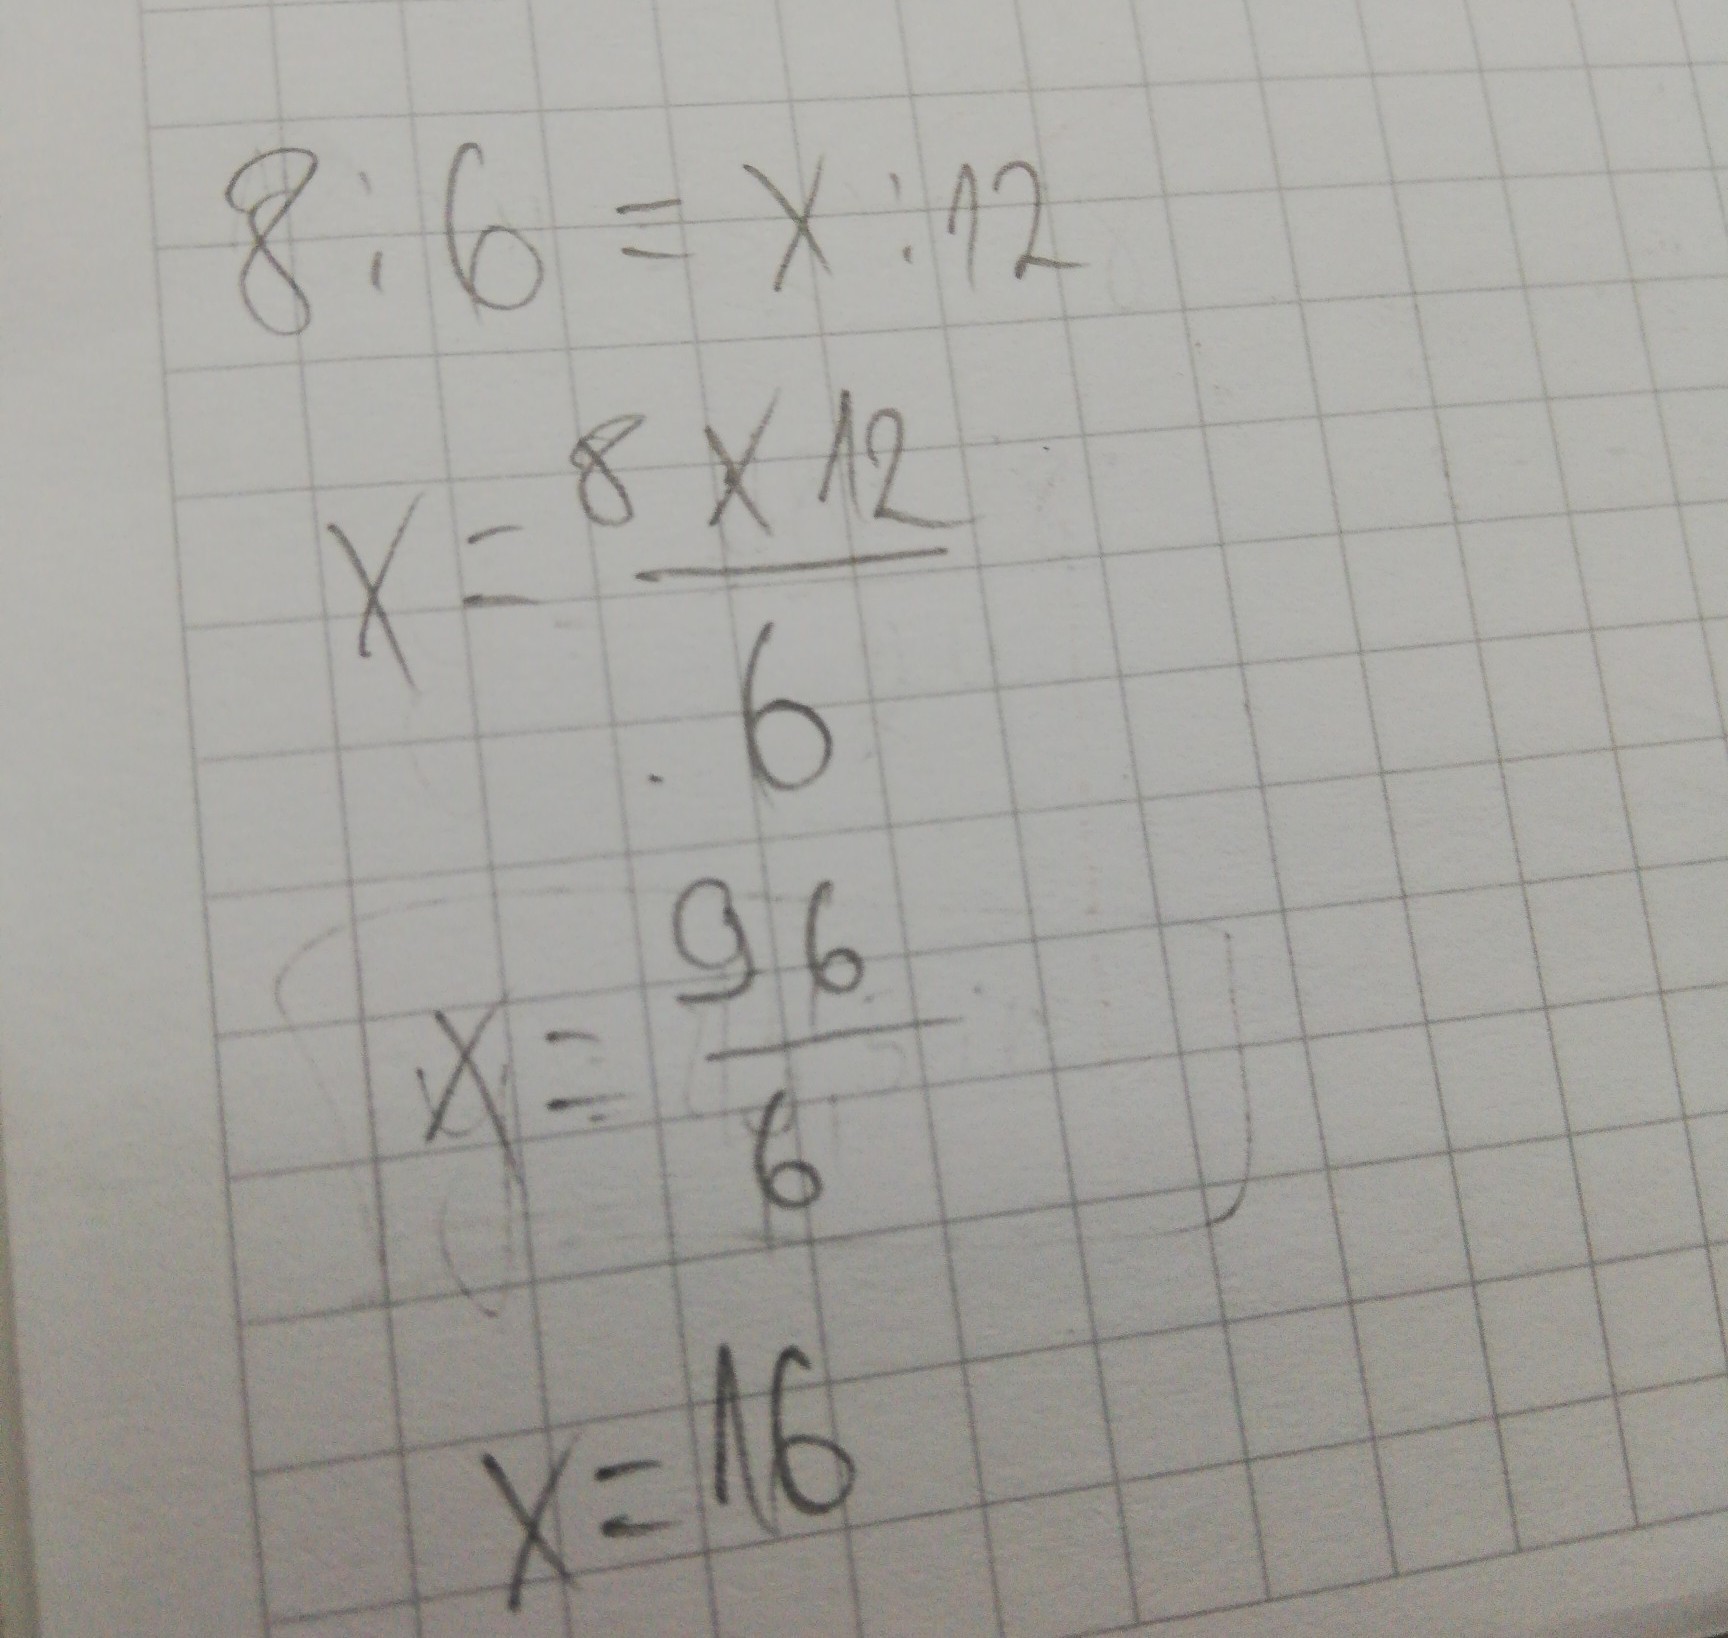 8:6 = x:12
x = 8 x 12
6
x = 96
6
x = 16